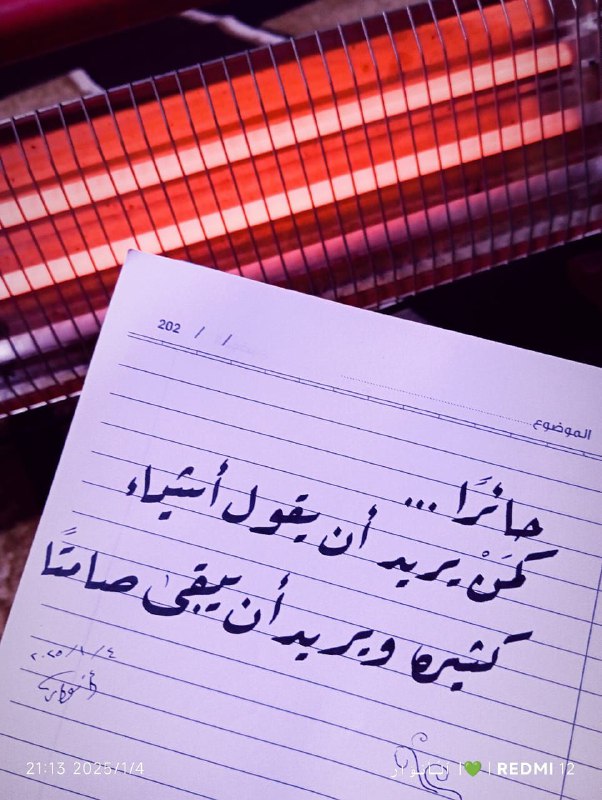 202 / /
الموضوع
حائرًا ...
كمَنْ يريد أن يقول أشياء
كثيره ويريد أن يبقىٰ صامتًا
٢٠٢٥/١/٤
21:13 2025/1/4
REDMI 12